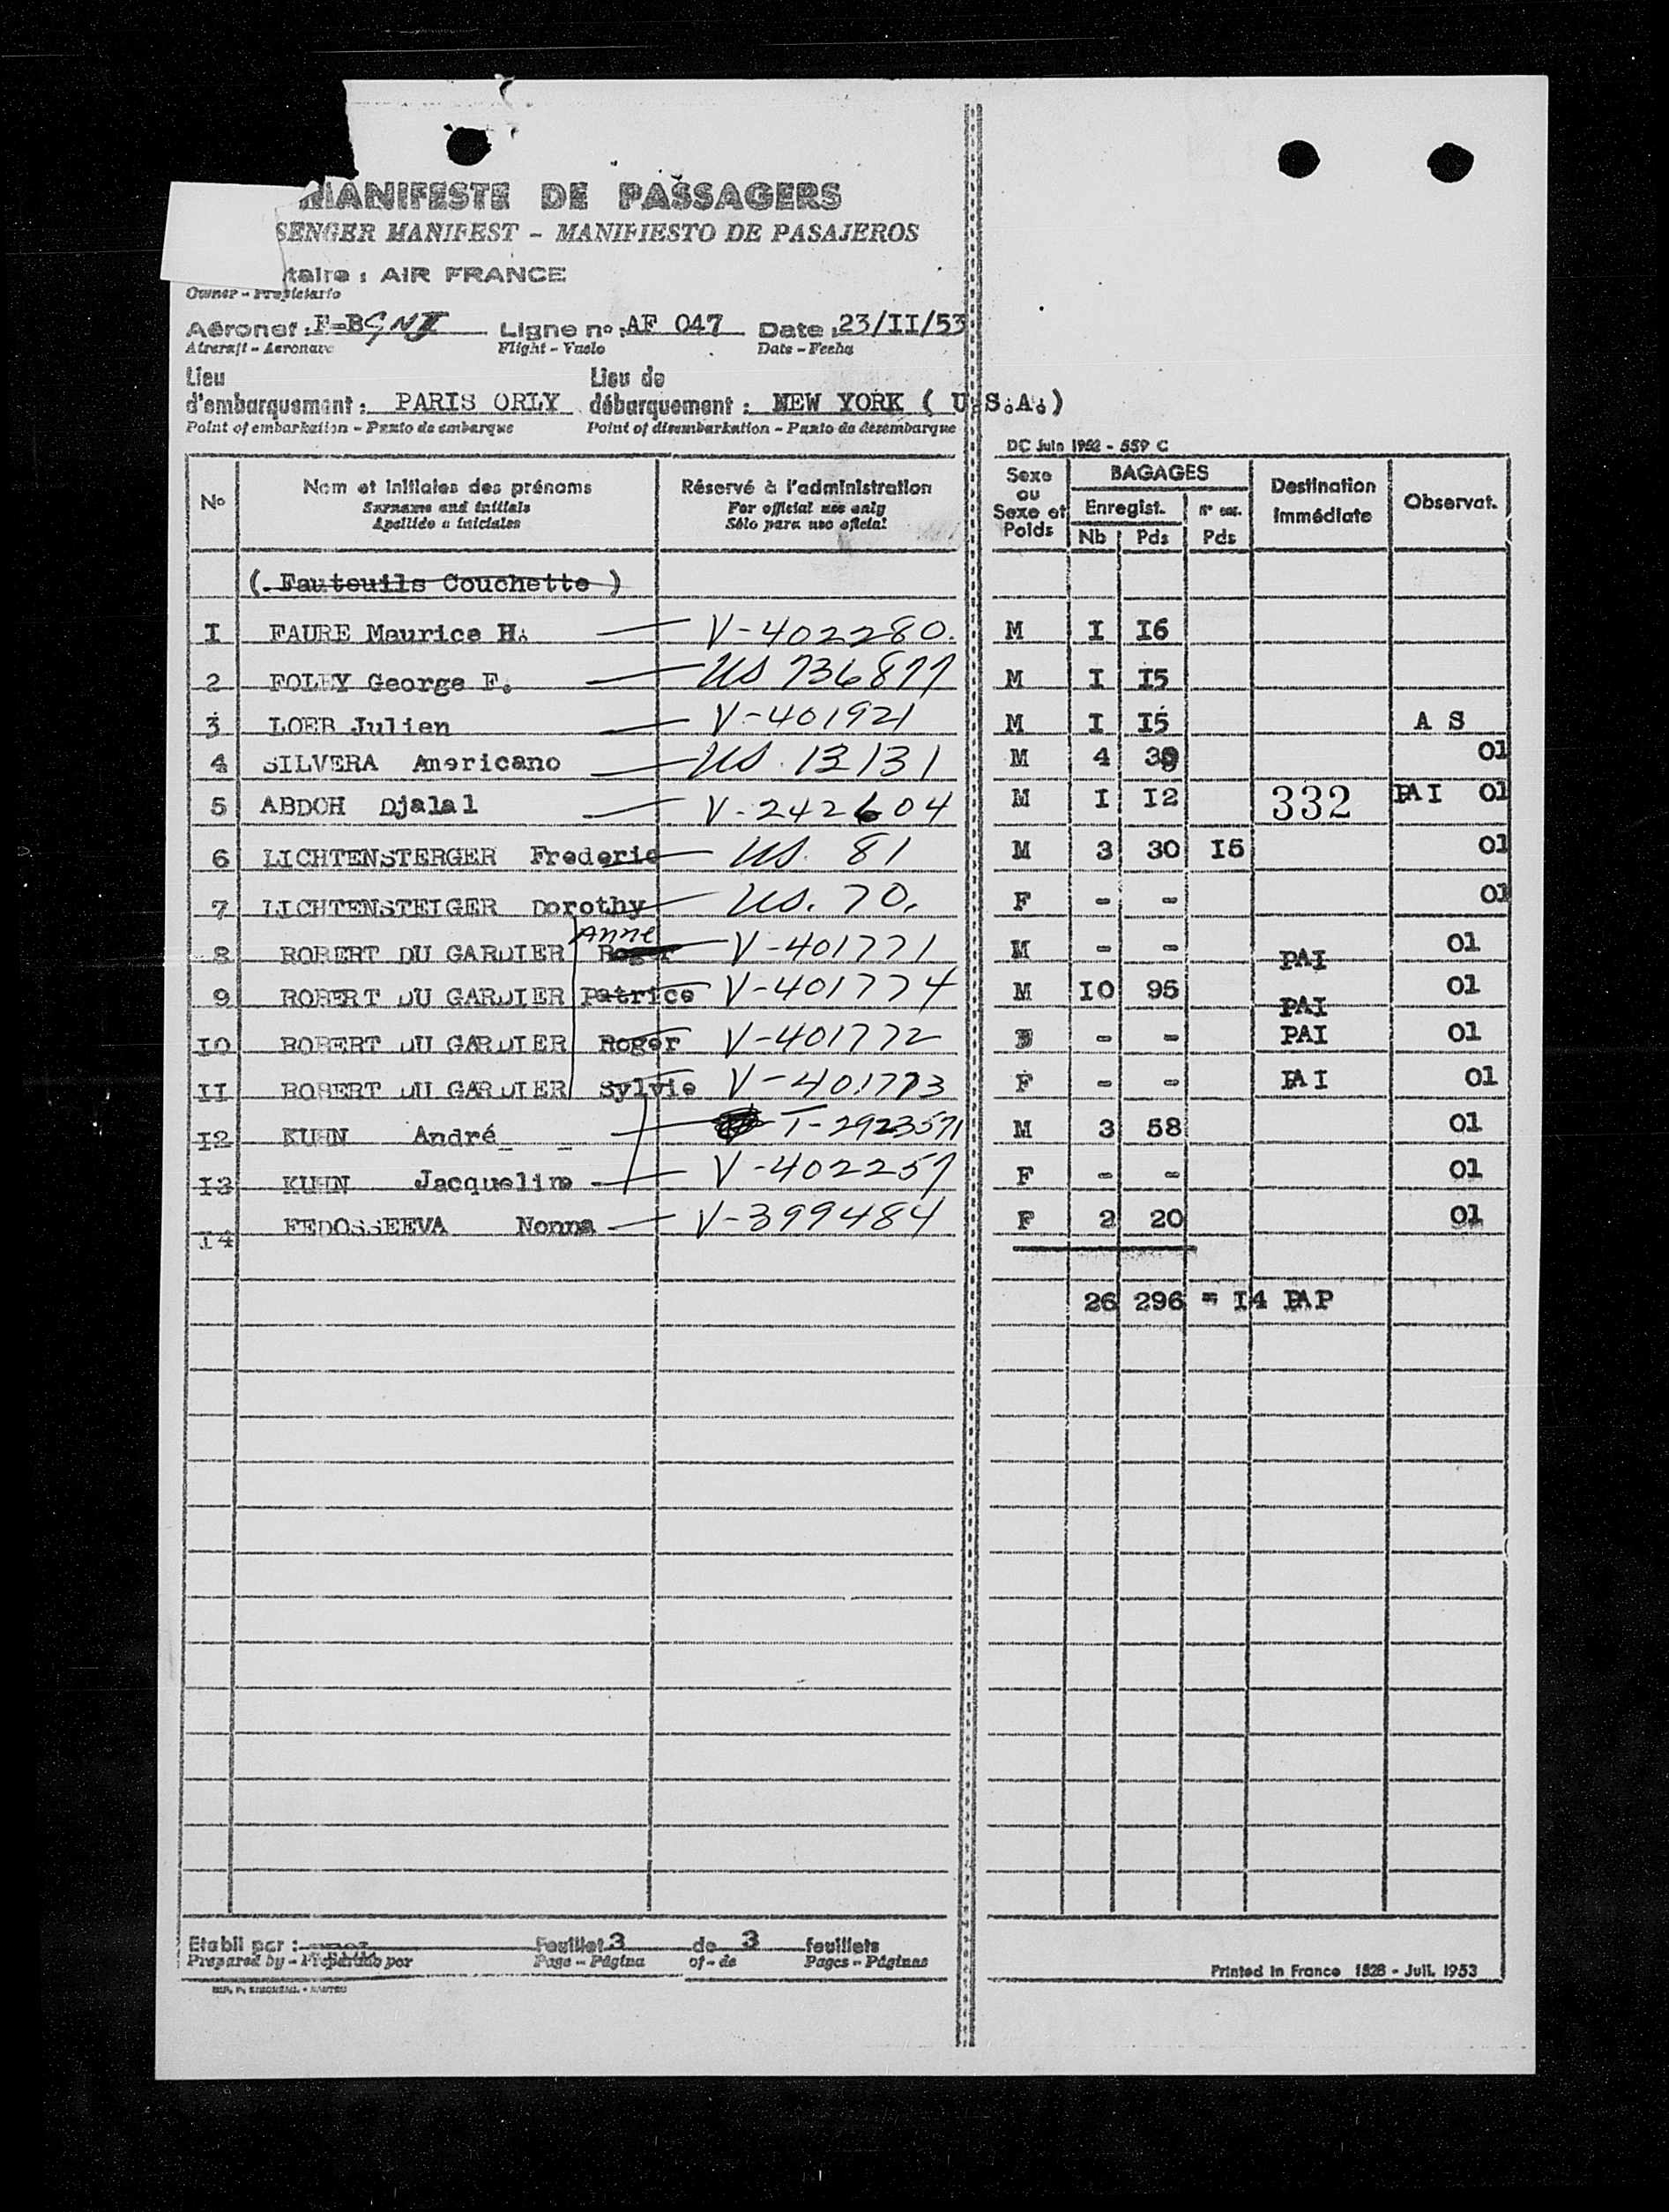 MANIFESTE DE PASSAGERS
SENGER MANIFEST - MANIFIESTO DE PASAJEROS
taire : AIR FRANCE
Owner - Propietario
Aéronef : F-BGNJ Ligne nº : AF 047 Date : 23/II/53
Aircraft - Aeronave Flight - Vuelo Date - Fecha
Lieu Lieu de
d'embarquement : PARIS ORLY débarquement : NEW YORK ( U.S.A.)
Point of embarkation - Punto de embarque Point of disembarkation - Punto de desembarque
DC Juin 1952 - 559 C
Nº Nom et initiales des prénoms Réservé à l'administration Sexe ou Sexe et Poids BAGAGES Destination immédiate Observat.
Surname and initials For official use only Enregist.
Apellido e iniciales Sólo para uso oficial Nb Pds Pds
( Fauteuils Couchette )
I FAURE Maurice H. V-402280. M I I6
2 FOLEY George F. US 736877 M I I5
3 LOEB Julien V-401921 M I I5 A S
4 SILVERA Americano US. 13131 M 4 39 01
5 ABDOH Djalal V-242604 M I I2 332 PAI 01
6 LICHTENSTERGER Frederic US. 81 M 3 30 I5 01
7 LICHTENSTEIGER Dorothy US. 70. F - - 01
8 ROBERT DU GARDIER Roger Anne V-401771 M - - PAI 01
9 ROBERT DU GARDIER Patrice V-401774 M IO 95 PAI 01
IO ROBERT DU GARDIER Roger V-401772 - - PAI 01
II ROBERT DU GARDIER Sylvie V-401773 F - - PAI 01
I2 KUHN André T-2923571 M 3 58 01
I3 KUHN Jacqueline V-402257 F - - 01
I4 FEDOSSEEVA Nonna V-399484 F 2 20 01
26 296 = I4 PAP
Etabli par : Feuillet 3 de 3 feuillets
Prepared by - Preparado por Page - Página of - de Pages - Páginas
Printed in France 1528 - Juil. 1953